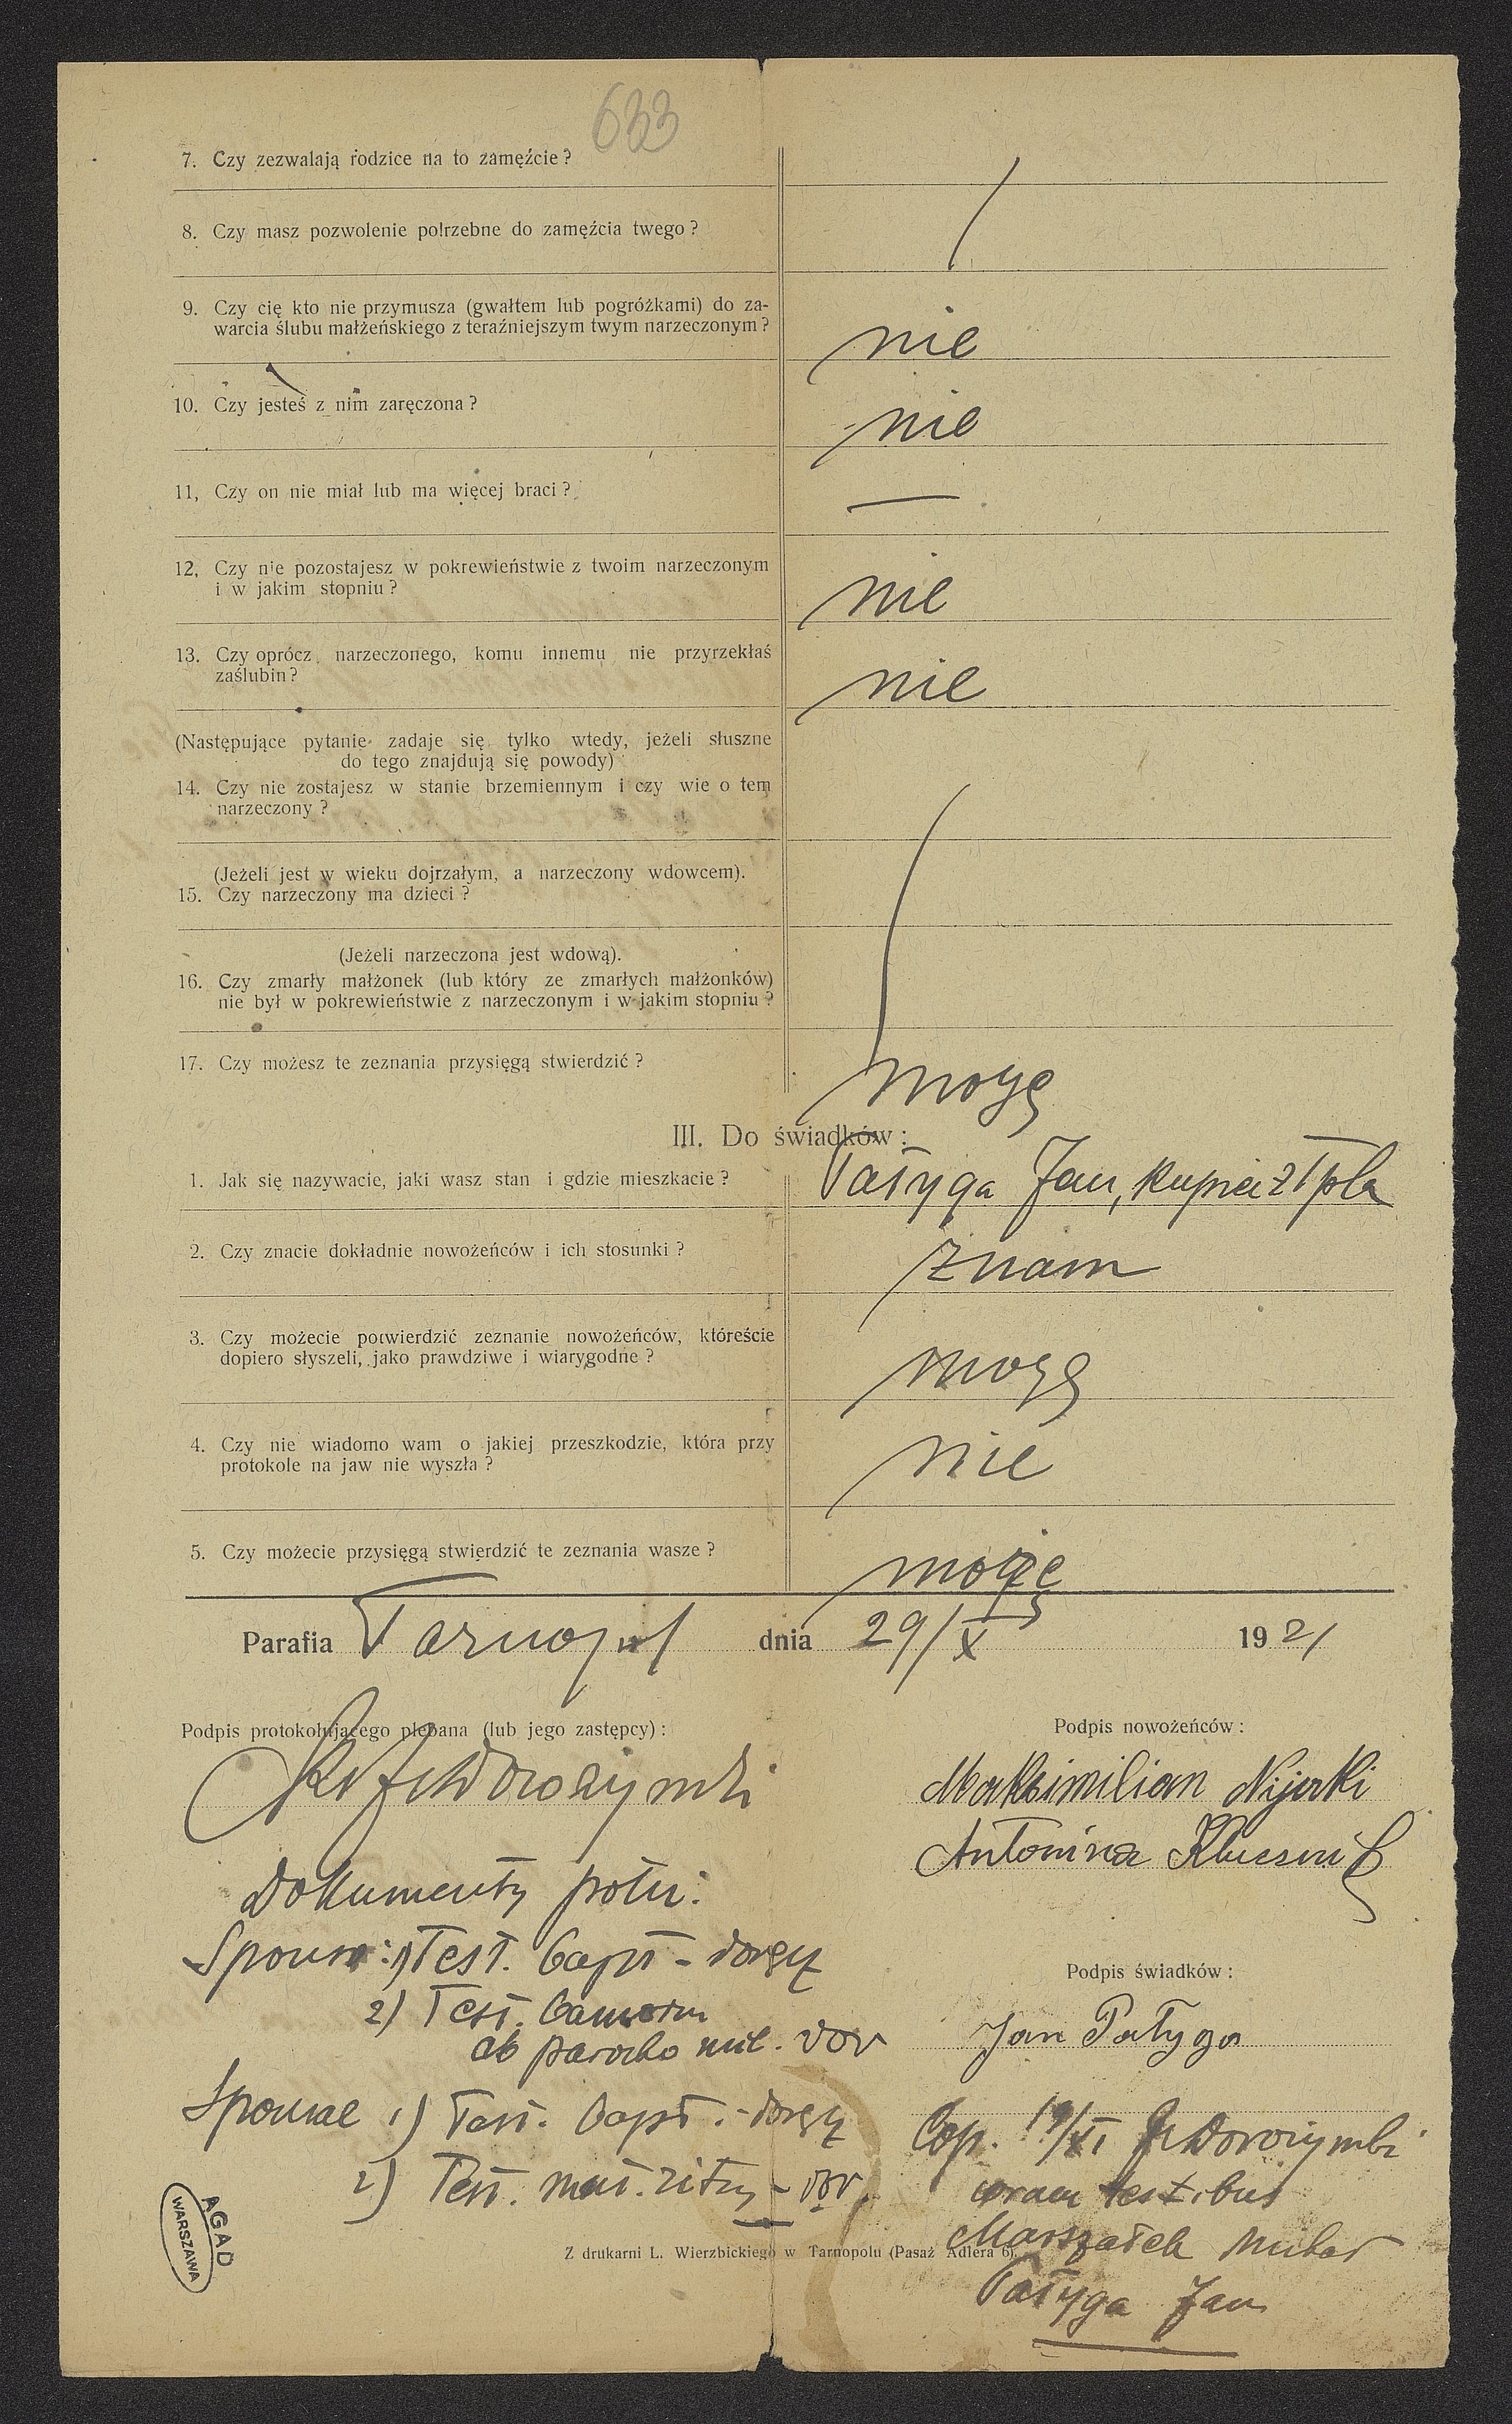 633
7. Czy zezwalają rodzice na to zamęźcie?
8. Czy masz pozwolenie potrzebne do zamęźcia twego?
9. Czy cię kto nie przymusza (gwałtem lub pogróżkami) do za-
warcia ślubu małżeńskiego z teraźniejszym twym narzeczonym?
nie
10. Czy jesteś z nim zaręczona?
nie
11, Czy on nie miał lub ma więcej braci?
—
12, Czy nie pozostajesz w pokrewieństwie z twoim narzeczonym
i w jakim stopniu?
nie
13. Czy oprócz narzeczonego, komu innemu nie przyrzekłaś
zaślubin?
nie
(Następujące pytanie zadaje się tylko wtedy, jeżeli słuszne
do tego znajdują się powody)
14. Czy nie zostajesz w stanie brzemiennym i czy wie o tem
narzeczony?
(Jeżeli jest w wieku dojrzałym, a narzeczony wdowcem).
15. Czy narzeczony ma dzieci?
(Jeżeli narzeczona jest wdową).
16. Czy zmarły małżonek (lub który ze zmarłych małżonków)
nie był w pokrewieństwie z narzeczonym i w jakim stopniu?
17. Czy możesz te zeznania przysięgą stwierdzić?
mogę
III. Do świadków:
1. Jak się nazywacie, jaki wasz stan i gdzie mieszkacie?
Pałyga Jan, kupiec z Tpla
2. Czy znacie dokładnie nowożeńców i ich stosunki?
znam
3. Czy możecie potwierdzić zeznanie nowożeńców, któreście
dopiero słyszeli, jako prawdziwe i wiarygodne?
mogę
4. Czy nie wiadomo wam o jakiej przeszkodzie, która przy
protokole na jaw nie wyszła?
nie
5. Czy możecie przysięgą stwierdzić te zeznania wasze?
mogę
Parafia Tarnopol dnia 29/X 1921
Podpis protokołującego plebana (lub jego zastępcy):
Podpis nowożeńców:
Maksimilian
Antonina
Dokumenty
1) Test. Bapt -
Podpis świadków:
2) Test.
ab parocho mil.
Jan Pałyga
Sponsae 1) Test. Bapt. -
2) Test.
Cop. 19/XI
coram testibus
Marszałek
Pałyga Jan
Z drukarni L. Wierzbickiego w Tarnopolu (Pasaż Adlera 6).
AGAD
WARSZAWA